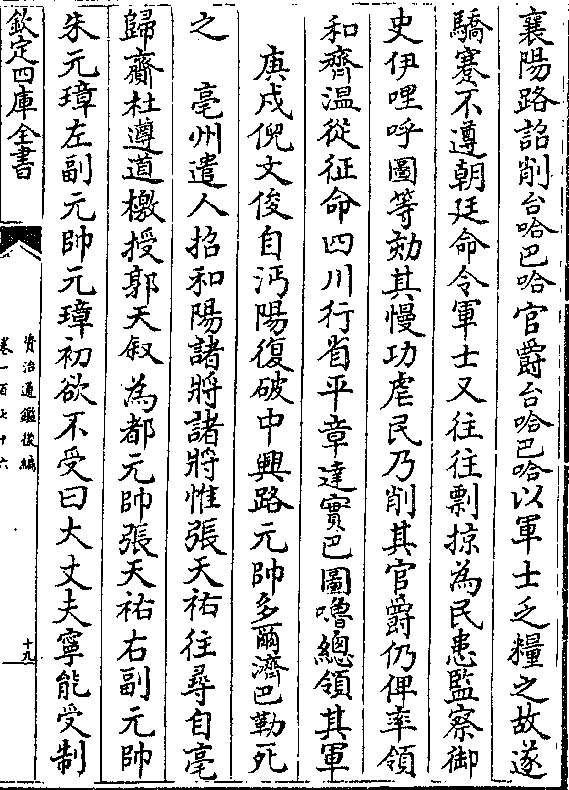 襄陽路詔削台哈巴哈官爵台哈巴哈以軍士乏糧之故遂
驕蹇不遵朝廷命令軍士又往往剽掠為民患監察御
史伊哩呼圖等劾其慢功虐民乃削其官爵仍俾率領
和齊溫從征命四川行省平章達實巴圖嚕總領其軍
庚戌倪文俊自沔陽復破中興路元帥多爾濟巴勒死
之　亳州遣人招和陽諸將諸將惟張天祐往尋自亳
歸齎杜遵道檄授郭天叙為都元帥張天祐右副元帥
朱元璋左副元帥元璋初欲不受曰大丈夫寧能受制
欽定四庫全書
資治通鑑後編
卷一百七十六
十九